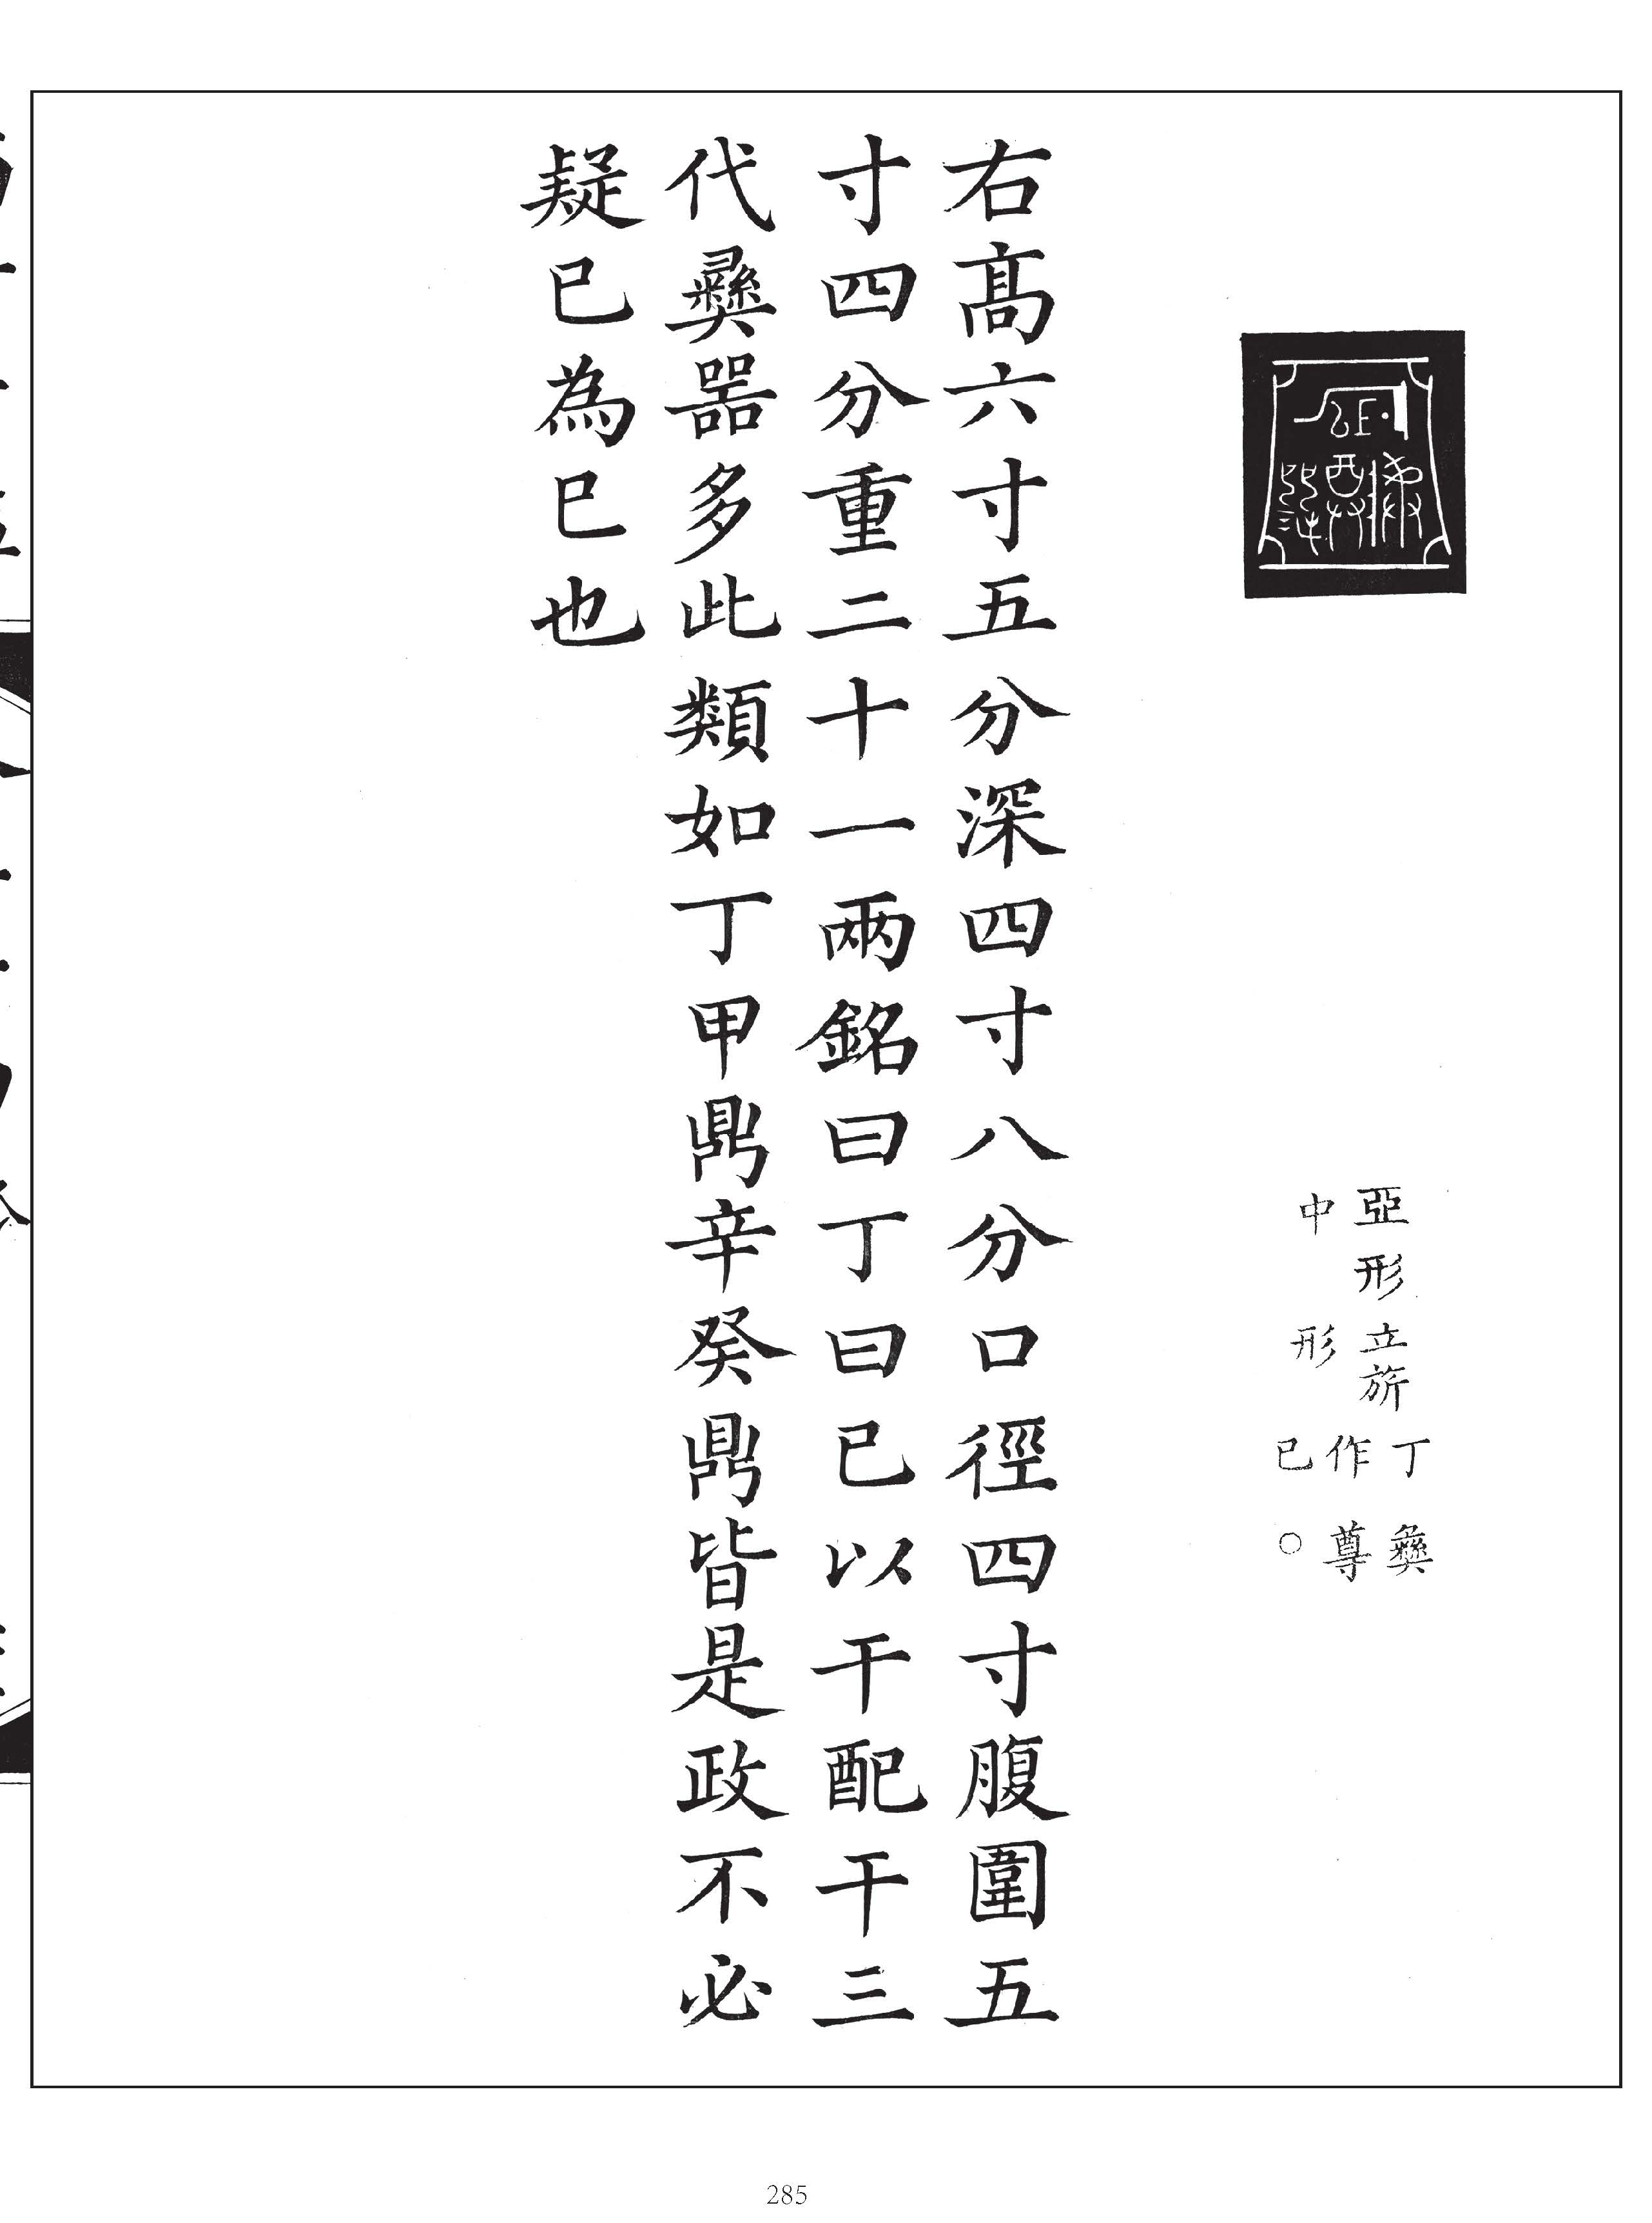 亞形
中
立旂
形
丁
作
已
彝
尊
○
右高六寸五分深四寸八分口徑四寸腹圍五
寸四分重二十一兩銘曰丁曰已以干配干三
代彝器多此類如丁甲鼎辛癸鼎皆是政不必
疑已為已也
285